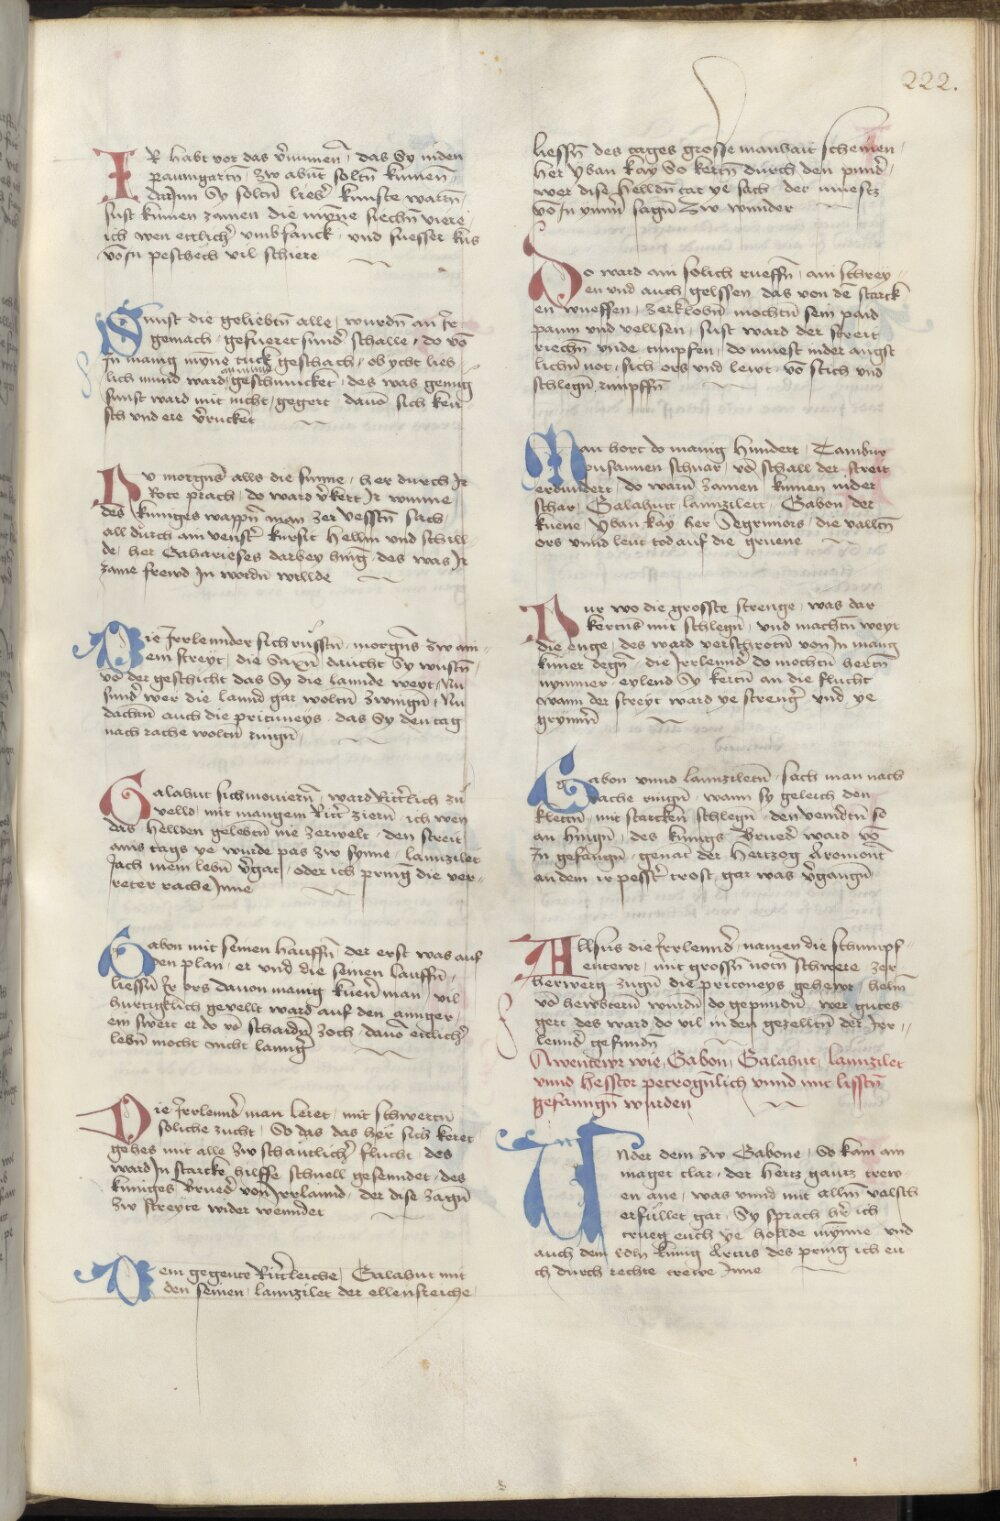 222.
IR habt vor das v̄nummen̄ , das Sy inden
paumgartn̄ , Zw abūt soltn̄ kumen̄ ,
darinn Sy soltn̄ lieb̄ kunste wartn̄ ,
sust kumen zamen die myn̄e siechn̄ viere ,
ich wen ettlich̄ vmbfanck , vnd suesser kus
vō In peschech vil schiere
Sunst die geliebtn̄ alle , wurdn̄ an Ir
gemach , gefueret sund̄ schalle , do vō
In manig myn̄e tuck geschach , ob ycht lieb ,
lich mund ward geschmucket , des was genug
sunst ward mit nicht gegert , dauō sich keu
sch vnd ere v̄rucket
Du morgns̄ alls die sunne , her durch Ir
Rote prach , do ward v̄kert Ir wunne ,
des kuniges wappn̄ man zer vesstn̄ sach ,
all durch ain venst̄ kursit Hellm vnd schill
de , her Gaharieses darbey hing , des was Ir
zame frewd In wordn̄ willde
Die Irrlennder sich russtn̄ , morgns̄ zw ain
em streyt , die Saxn̄ daucht Sy wustn̄ ,
vō der geschicht das Sy die lannde weyt , Nu
sund̄ wer die lannd gar woltn̄ zwingn̄ , Nu
dachtn̄ auch die prituneys , das Sy den tag
nach rache woltn̄ ringn̄ ,
Galahut sich mouiern̄ , ward Ritt̄lich zu
velld , mit mangem Ritt̄ ziern̄ ich wen
das Hellden gelebtn̄ nie zerwelt , den streit
ains tags ye wurde pas zw synne , lannzilet
Jach mein lebn̄ v̄gat , oder ich pring die ver ,
reter rache Inne
Gabon mit seinen hauffn̄ , der erst was auf
den plan , er vnd die seinen lauffn̄ ,
liessn̄ Ir ors dauon manig kuen̄ man , vil
hurtiglich gevellt ward auf den annger ,
ein swert er do vō schaidn̄ zoch , dauō ettlich̄
lebn̄ mocht nicht lannḡ
Die Irrlennd̄ man leret , mit schwertn̄
soliche zucht , So das das her sich keret
gehes mit alle zw schantlich̄ flucht , des
ward In starcke hilffe schnell gesenndet , des
kuniges Brued̄ von Irrlannd , der dise zagn̄
zw streyte wider wenndet
Dem gegente Ritt̄leiche , Galahut mit
den seinen , lannzilet der ellensreiche ,
liessn̄ des tages grosse manhait scheinen ,
Her Yban kay So kertn̄ durch den pund̄ ,
wer dise Helldn̄ tat ye sach , der muest
vō In ymm̄ sagn̄ Zw wunder
Do ward ain solich rueffn̄ , ain schrey ,
en vnd auch gelssen , das von dē starck
en wueffen , zerklobn̄ mochtn̄ sein paid
paum vnd vellsen , sust ward der streit
riechn̄ vnde timpfen , do muest inder angst
lichn̄ not , sich ors vnd lewt , vō stich vnd
schlegn̄ rimpffn̄
Man hort do manig Hundert , Tambur
pusaunen schnar , vō schall der streit
erdundert do warn̄ zamen kumen inder
schar , Galahutt lannzilett , Gabon der
kuene Yban kay Her Segrimors , die valltn̄
ors vnnd leut tod auf die gruene
Nur wo die grosste strenge , was dar
kertns mit schlegn̄ , vnd machtn̄ weyt
die enge , des ward verschrotn̄ von In mang
kuner degn̄ , die Irrlennd̄ do mochtn̄ hertn̄
nymmer , eylend Sy kertn̄ an die flucht
wann der streyt ward ye strenḡ vnd ye
grymm̄
Gabon vnnd lannziletn̄ , sach man nach
rache ringn̄ , wann sy geleich den
klettn̄ , mit starckn̄ schlegn̄ , den veindtn̄ so
an hingn̄ , des kunigs Brued̄ ward vō
In gefangn̄ , genāt der Hertzog Aremont
an dem ir pesst̄ trost , gar was v̄gangn̄
Allsus die Irrlennd̄ , namen die schumpf ,
entewr , mit grossn̄ notn̄ schwere zer
Herwerg zugn̄ die pritoneys gehewr , helm
vō hewbtern̄ wurdn̄ do gepundn̄ , wer gutes
gert des ward do vil in den gezelltn̄ der Irr ,
lennd̄ gefundn̄
Awentewr wie Gabon , Galahut , lannzilet
vnnd Hesstor petrognlich vnnd mit lisstn̄
gefanngn̄ wurden
Under dem zw Gabone , So kam ain
maget clar , der Hertz gantz trew
en ane , was vnnd mit allm̄ valsch
erfullet gar , Sy sprach her ich
trueg euch ye hollde mynne vnd
auch dem edln̄ kunig Artus des pring ich eu
ch durch rechte trewe Inne